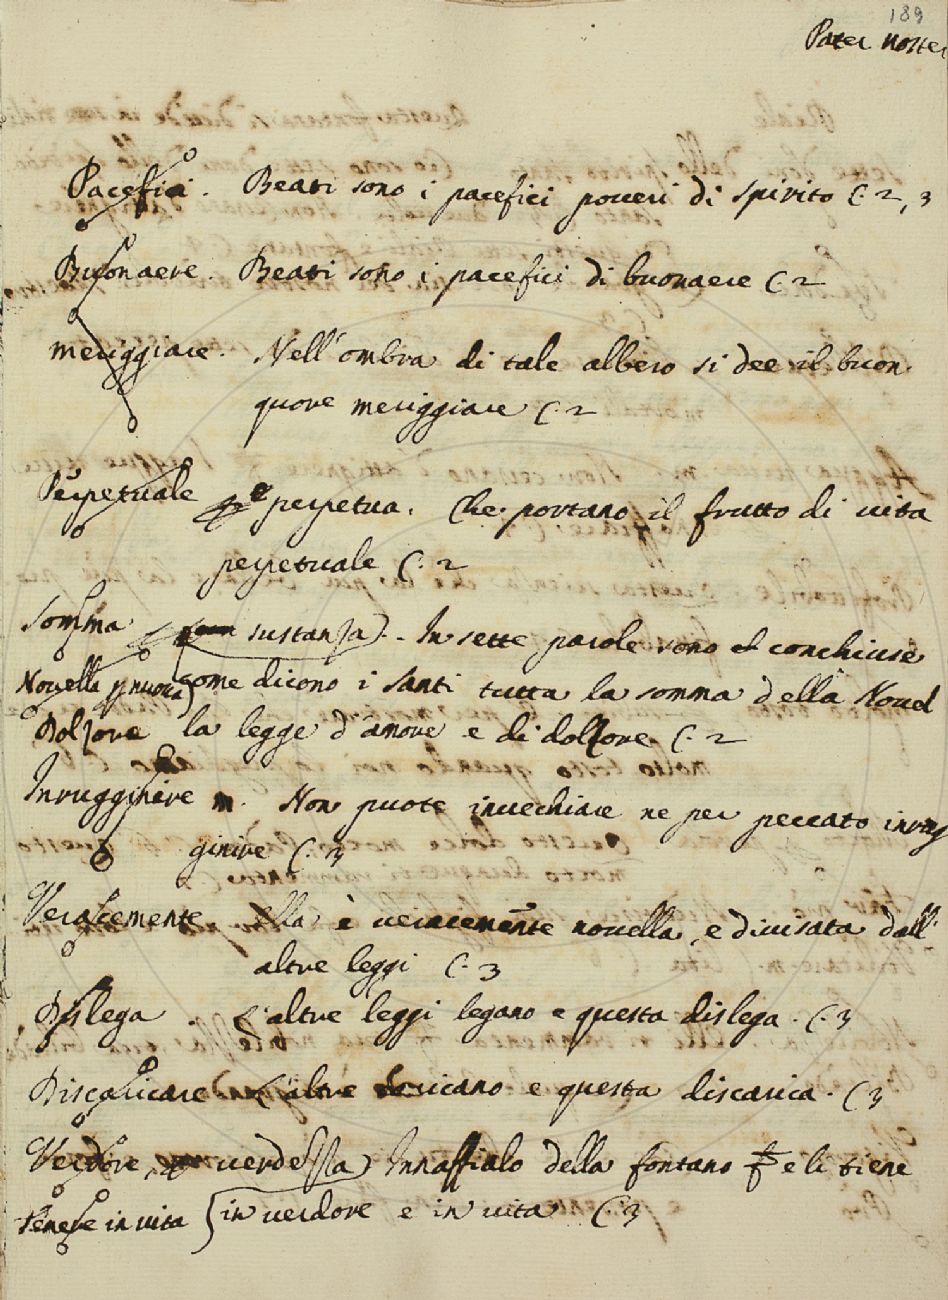 189
Pater noster
Pacefici. Beati sono i pacefici poveri di spirito C. 2, 3
Buonaere. Beati sono i pacefici di buonaere C. 2
meriggiare. Nell'ombra di tale albero si dee il buon
quore meriggiare C. 2
Perpetuale perpetua. Che portano il frutto di vita
perpetuale C. 2
Somma sustanza). In sette parole sono conchiuse
Novella p nuova come dicono i Santi tutta la somma della Novel
Dolzore la legge d'amore e di dolzore C. 2
Inrugginire m. Non puote invechiare ne per peccato inrug
ginire C. 3
Veracemente ella è veracemente novella, e divisata dall'
altre leggi C. 3
Dislega. L'altre leggi legano e questa dislega. C. 3
Discaricare L'altre caricano e questa discarica. C 3
Verdore verdezza) Innaffialo della fontana e li tiene
Tenere in vita in verdore e in vita C. 3